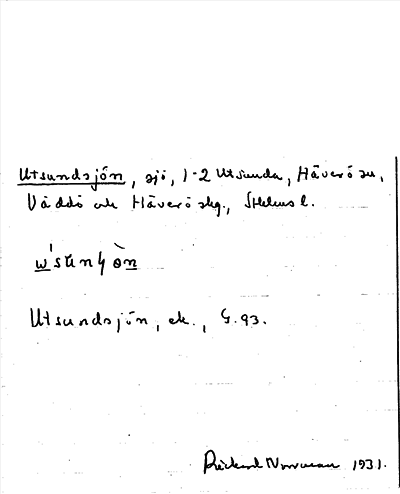 Utsundsjön, sjö, 1-2 Utsunda, Häverö sn,
Väddö och Häverö skg., Sthlms l.
Utsundsjön, ek., G.93.
Rickard Norrman 1931.